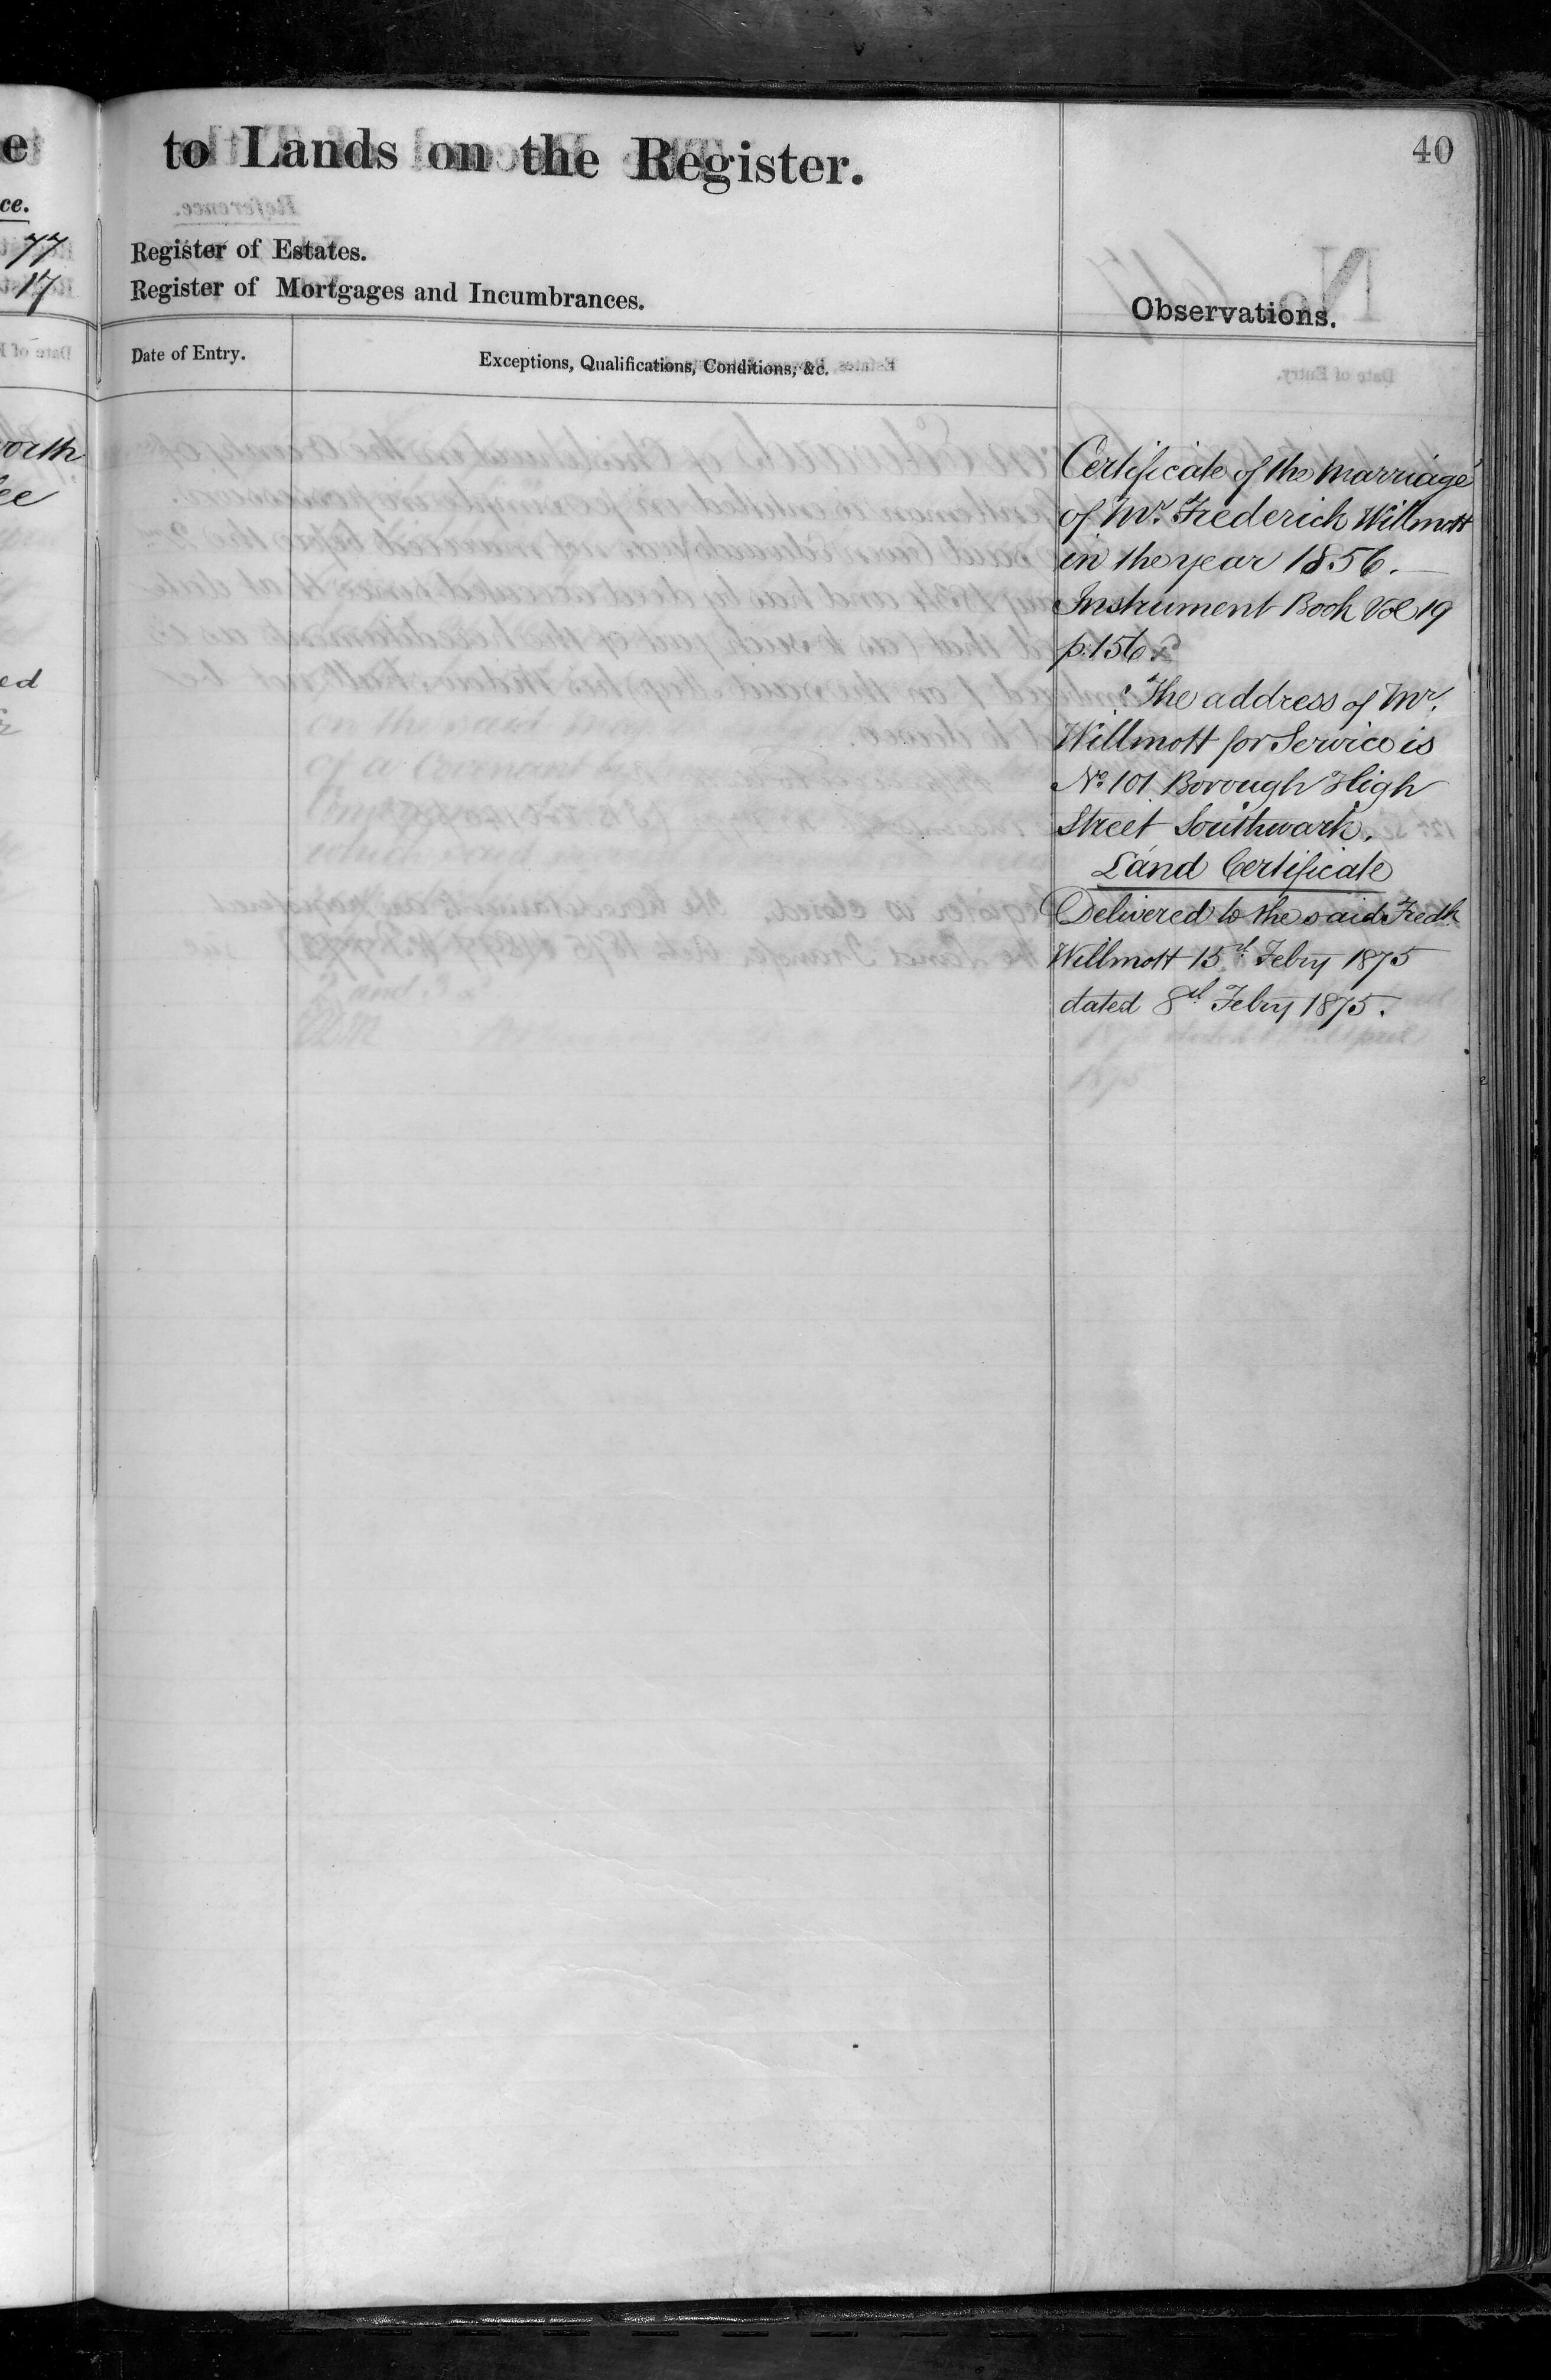 e
ce.
77
17
orth
ee
ed
to Lands on the Register.
40
Register of Estates.
Register of Mortgages and Incumbrances.
Observations.
Date of Entry.
Exceptions, Qualifications, Conditions, &c.
Certificate of the marriage
of Mr. Frederick Willmott
in the year 1856.
Instrument Book Vol 19
p. 156.
The address of Mr.
Willmott for Service is
No. 101 Borough High
Street Southwark.
Land Certificate
Delivered to the said Fredk
Willmott 15th Febry 1875
dated 8th Febry 1875.